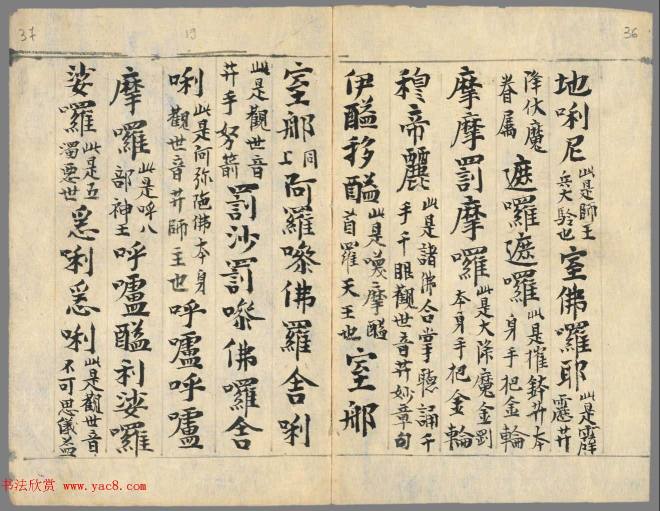 36
地唎尼 此是師王兵大聆也 室佛囉耶 此是霹靂并
降伏魔眷属 遮囉遮囉 此是摧鉢并本身手把金輪
摩摩罰摩囉 此是大降魔金剛本身手把金輪
穆帝麗 此是諸佛合掌聴誦千手千眼觀世音并妙章句
伊醯移醯 此是嘆摩醯首羅天王也 室那
37
19
室那 同上 阿羅嘇佛羅舍唎
此是觀世音并手努箭 罰沙罰嘇佛囉舍
唎 此是阿弥陁佛本身觀世音并師主也 呼嚧呼嚧
摩囉 此是呼八部神王 呼嚧醯利娑囉
娑囉 此是五濁悪世 悉唎悉唎 此是觀世音不可思儀益
书法欣赏 www.yac8.com